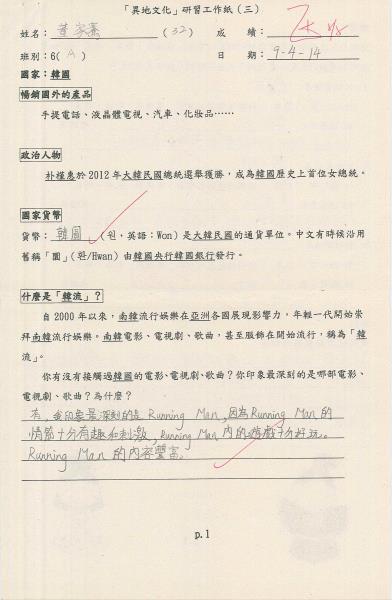 「異地文化」研習工作紙(三)
姓名: (32) 成 績:
班別:6( A ) 日 期: 9-4-14
國家:韓國
暢銷國外的產品
手提電話、液晶體電視、汽車、化妝品……
政治人物
朴槿惠於2012年大韓民國總統選舉獲勝,成為韓國歷史上首位女總統。
國家貨幣
貨幣: 韓圓 (원,英語:Won)是大韓民國的通貨單位。中文有時候沿用
舊稱「圜」(환/Hwan)由韓國央行韓國銀行發行。
什麼是「韓流」?
自2000年以來,南韓流行娛樂在亞洲各國展現影響力,年輕一代開始崇
拜南韓流行娛樂。南韓電影、電視劇、歌曲,甚至服飾在開始流行,稱為「韓
流」。
你有沒有接觸過韓國的電影、電視劇、歌曲?你印象最深刻的是哪部電影、
電視劇、歌曲?為什麼?
有,我印象最深刻的是Running Man,因為Running Man的
情節十分有趣和刺激,Running Man內的遊戲十分好玩。
Running Man的內容豐富。
p.1